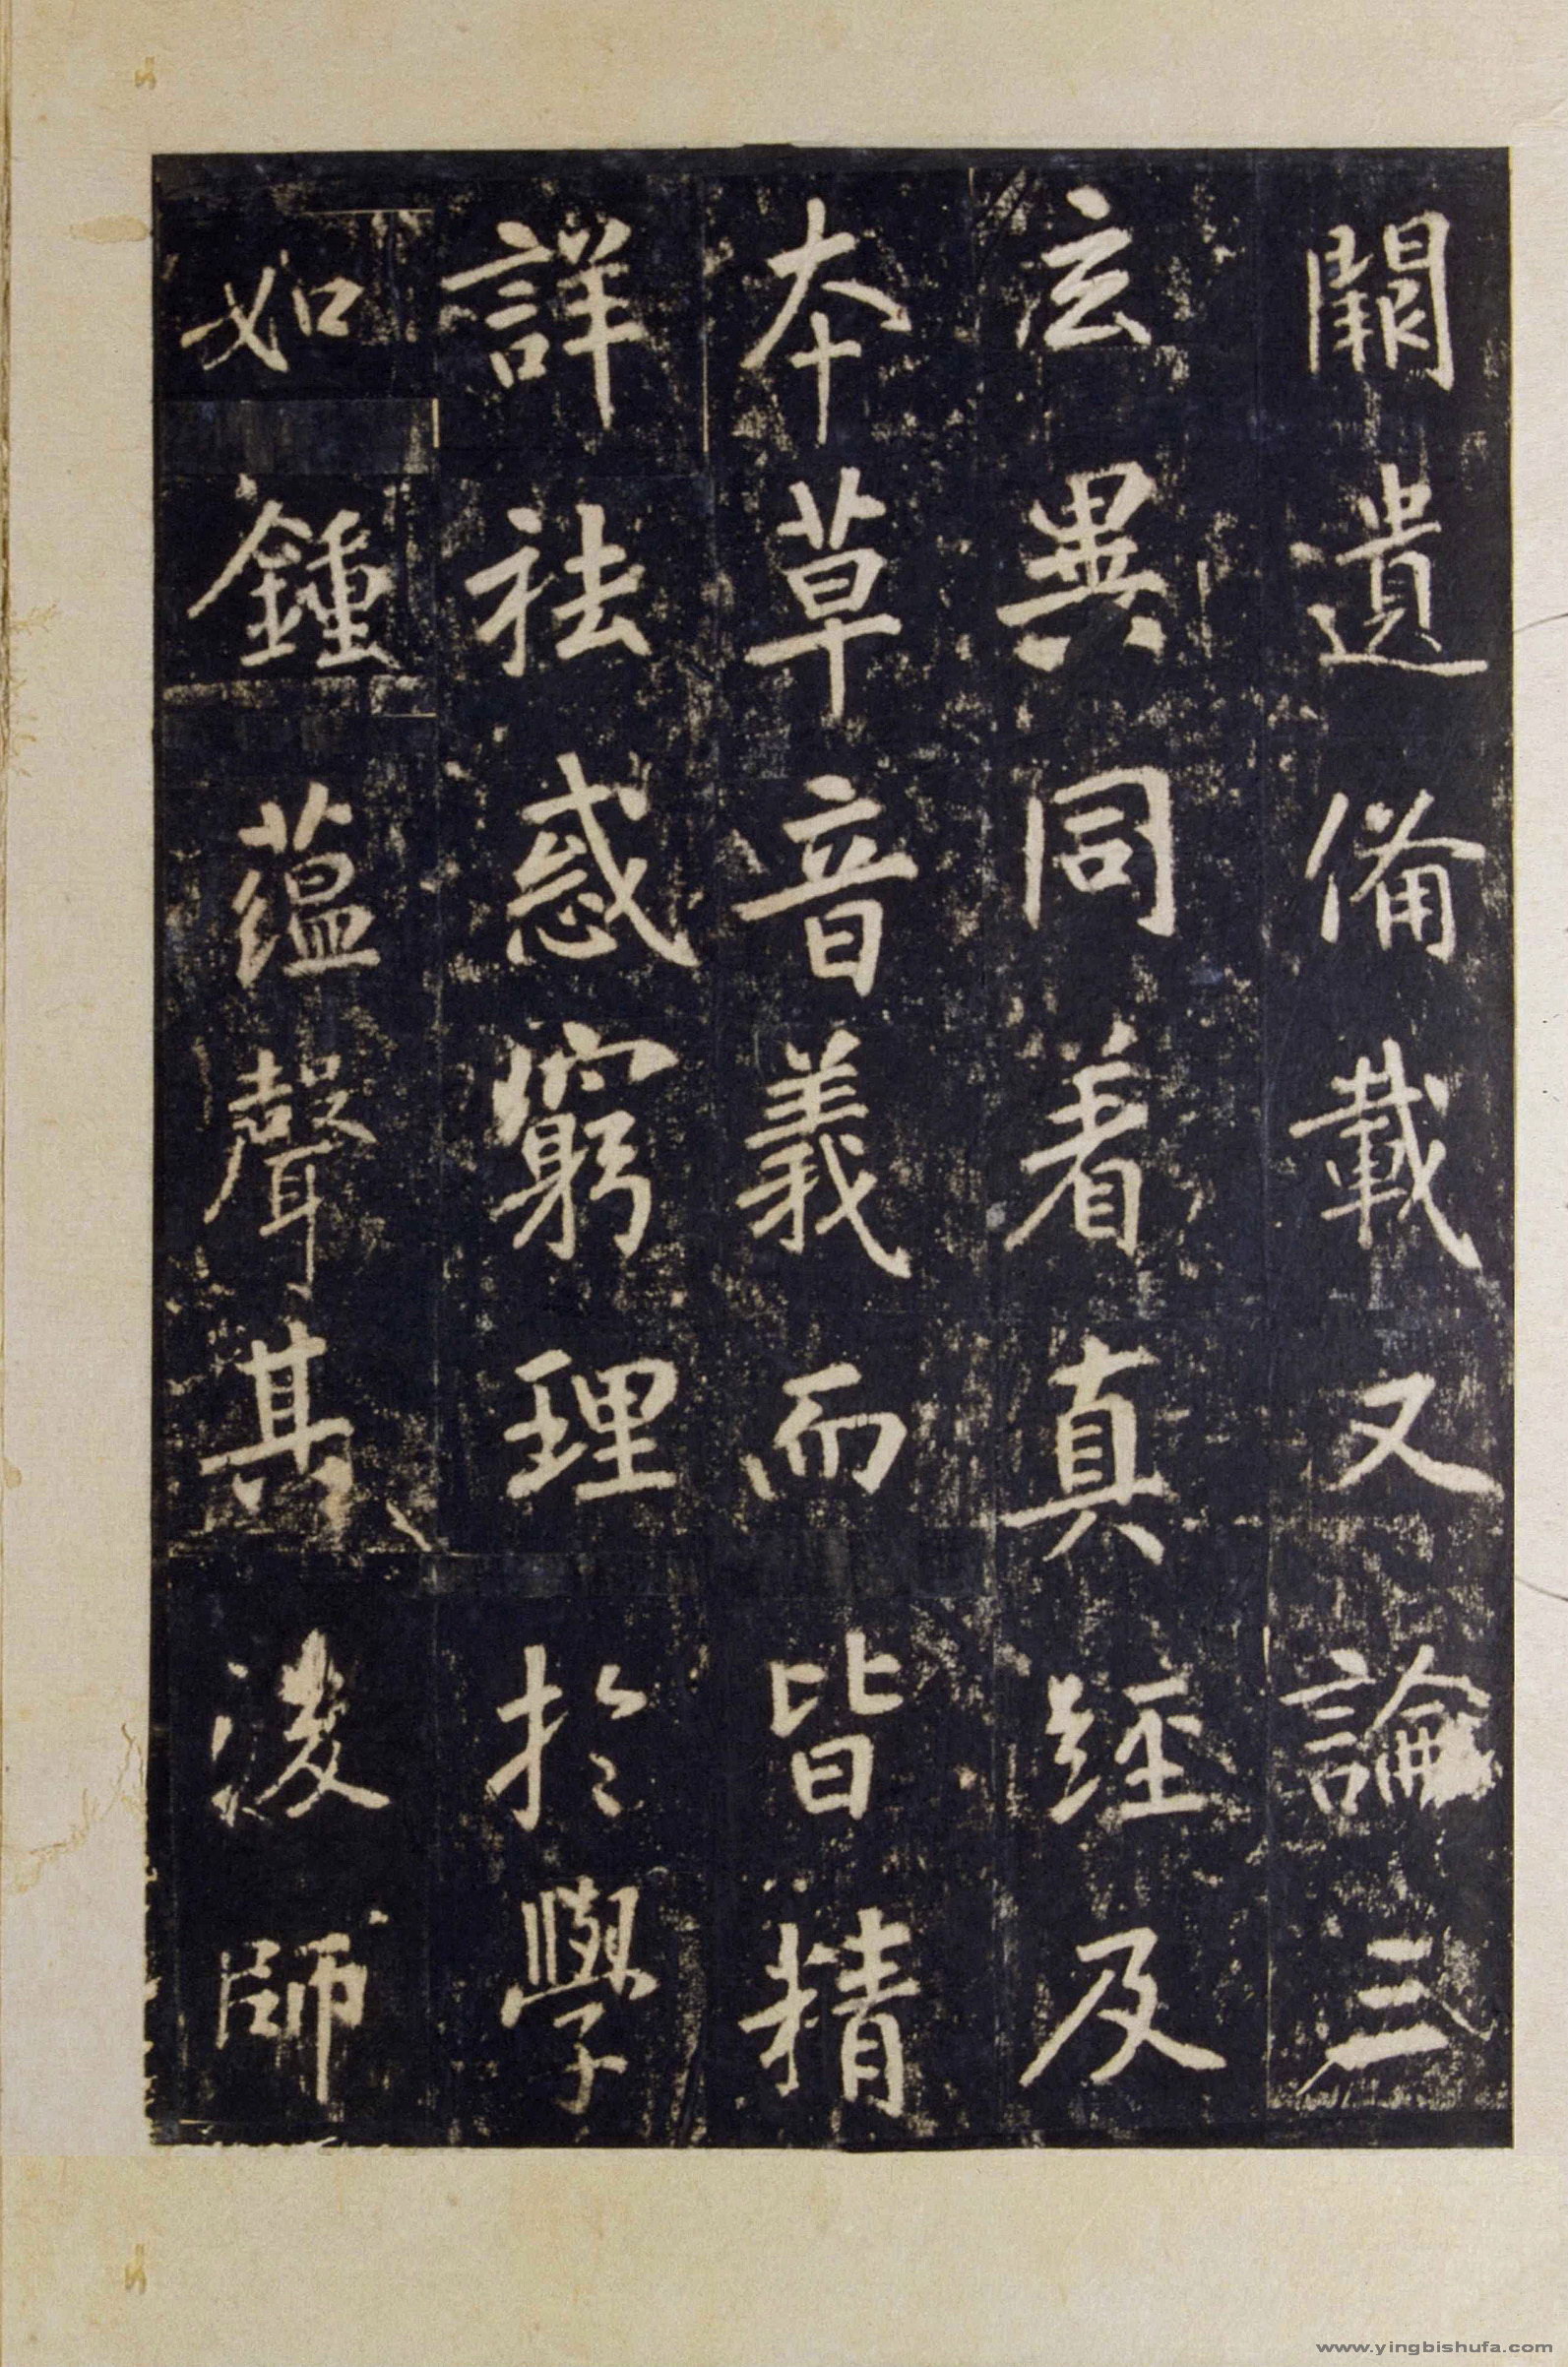 闕遺備載又論三
玄異同着真經及
本草音義而皆精
詳祛惑窮理於學
如鍾蘊聲其後師
www.yingbishufa.com